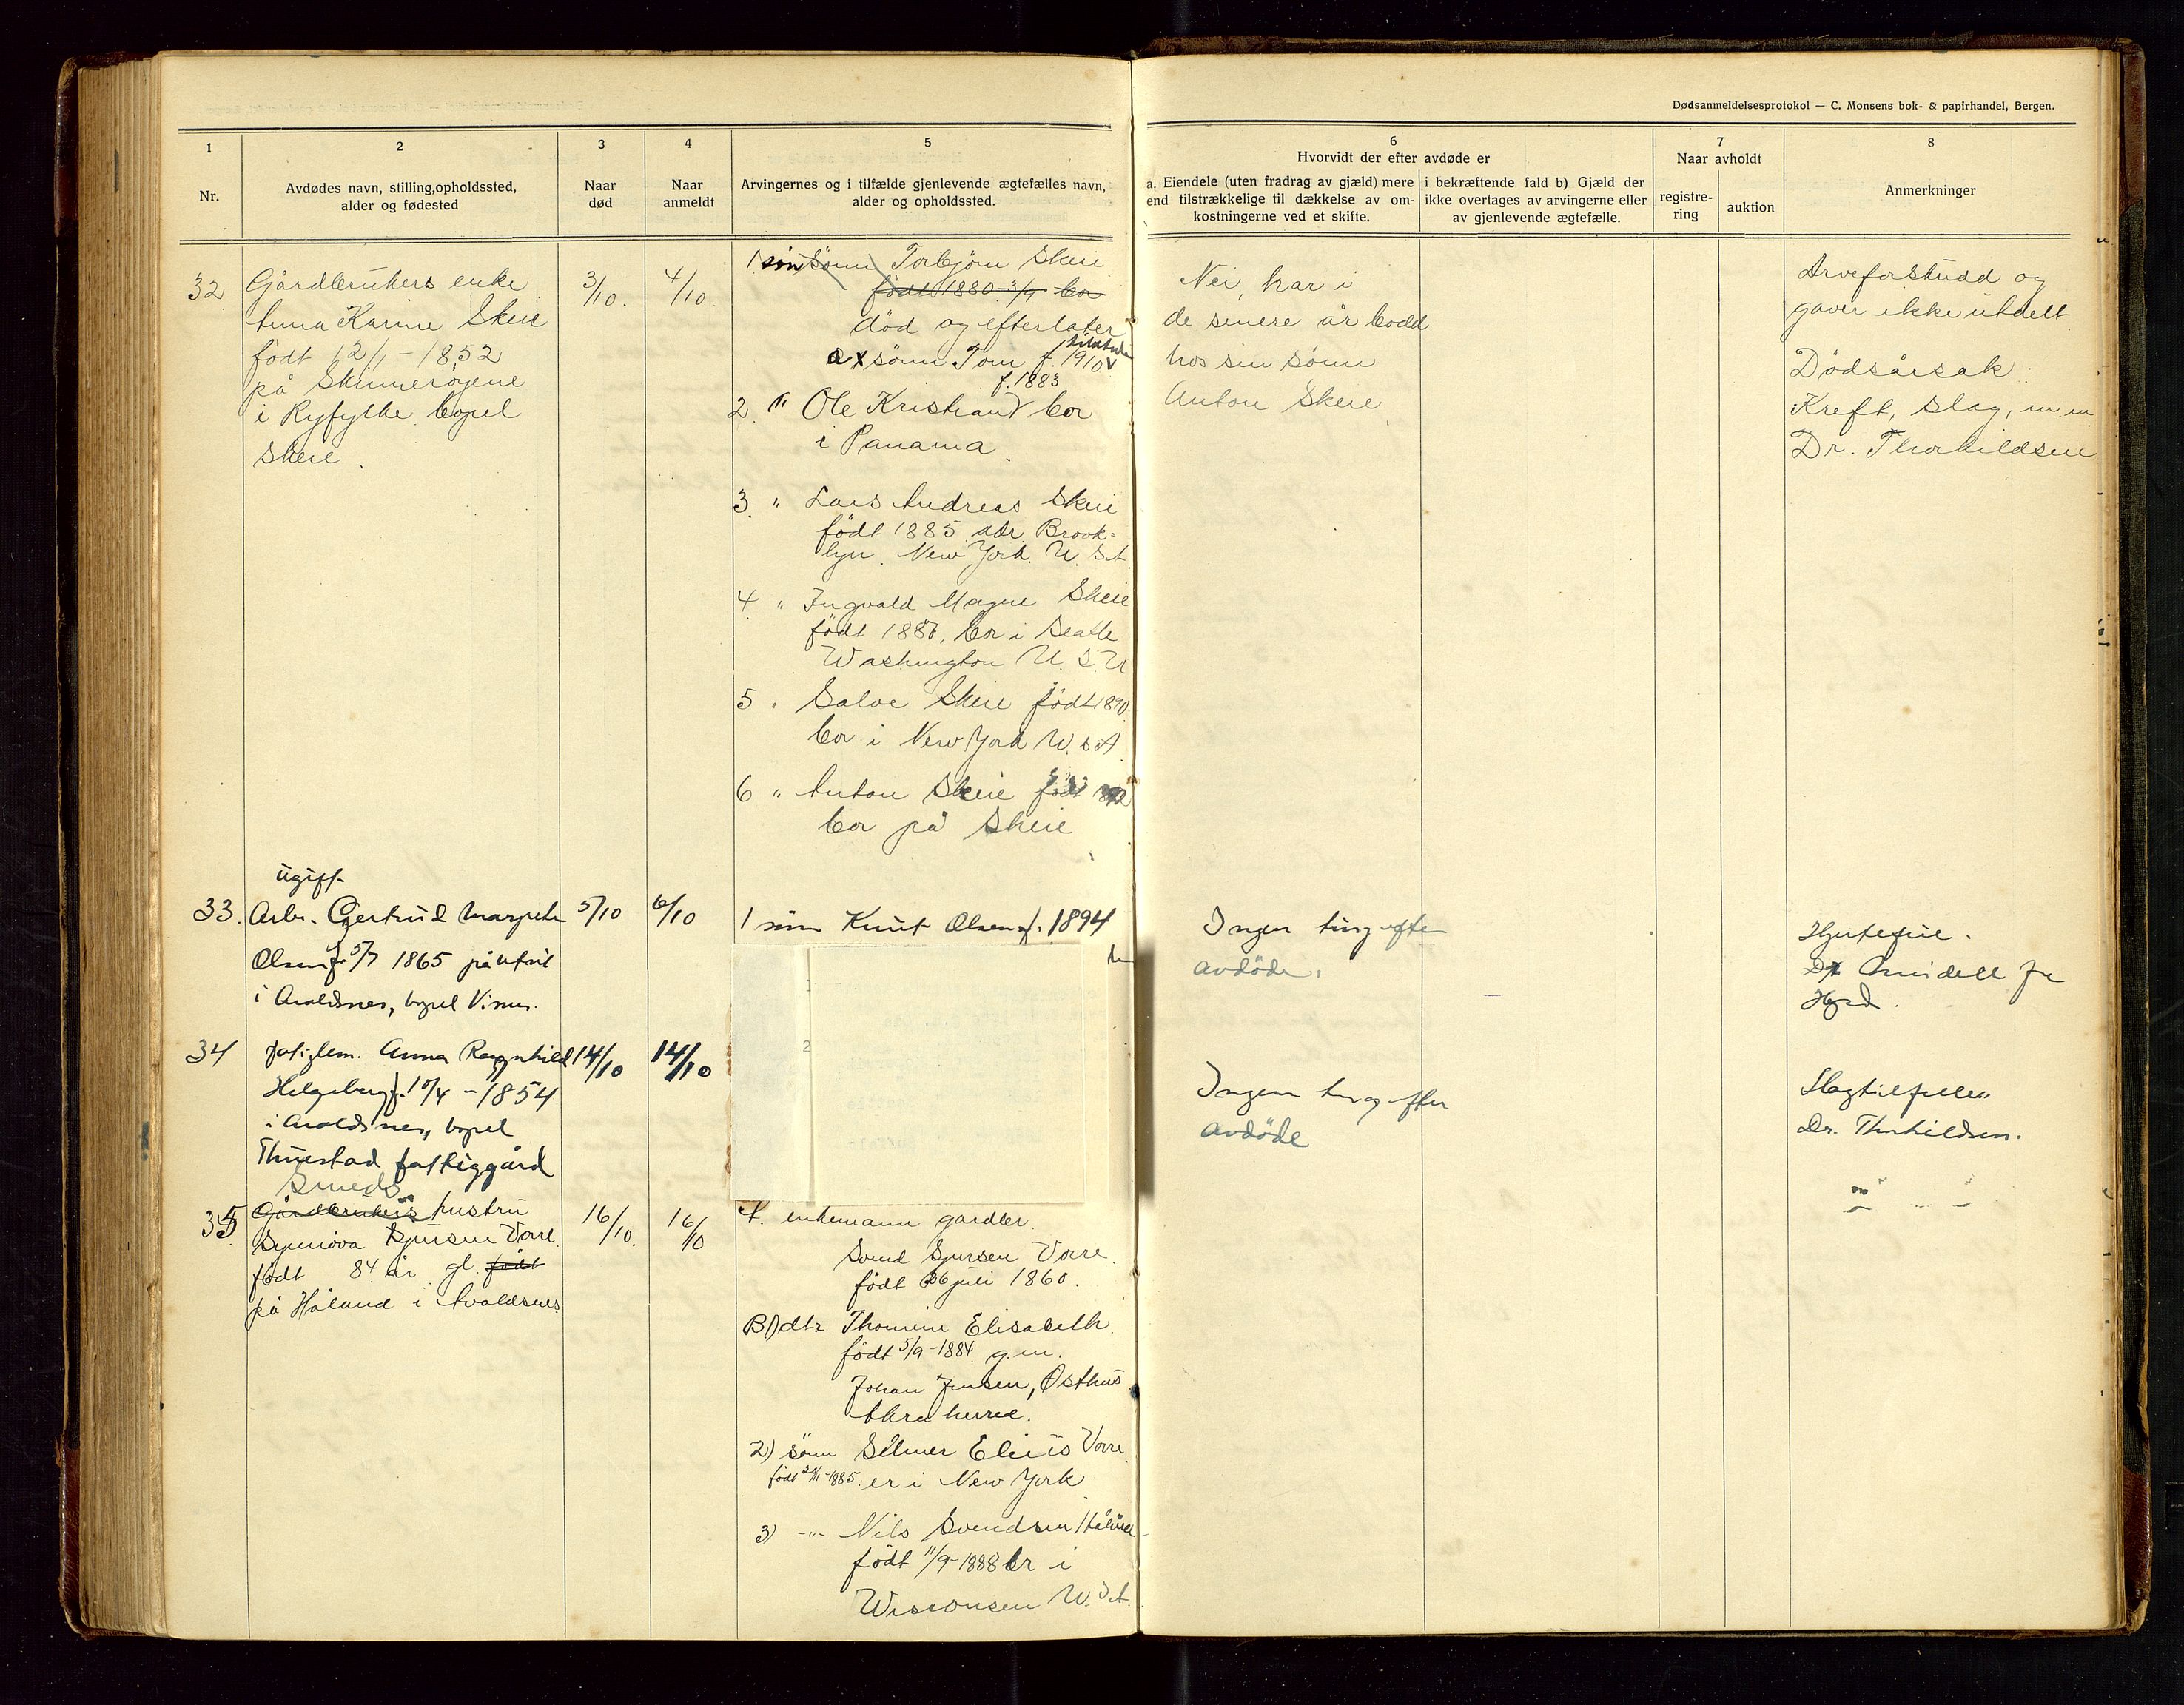 Dødsanmeldelsesprotokol — C. Monsens bok- & papirhandel, Bergen.
1
Nr.
2
Avdødes navn, stilling, opholdssted,
alder og fødested
3
Naar
død
4
Naar
anmeldt
5
Arvingernes og i tilfælde gjenlevende ægtefælles navn,
alder og opholdssted.
6
Hvorvidt der efter avdøde er
a. Eiendele (uten fradrag av gjæld) mere
end tilstrækkelige til dækkelse av om-
kostningerne ved et skifte.
i bekræftende fald b) Gjæld der
ikke overtages av arvingerne eller
av gjenlevende ægtefælle.
7
Naar avholdt
registre-
ring
auktion
8
Anmerkninger
32
Gårdbrukers enke
Anna Karine Skeie
født 12/1 - 1852
på
i Ryfylke bopel
Skeie.
3/10.
4/10.
1 sønn Torbjørn Skeie
født 1880 3/9 bor
död og efterlater
a sönn Tom f. 1910
f. 1883
2. " Ole Kristian bor
i Panama.
3. " Lars Andreas Skeie
født 1885 adr. Brook-
lyn. New York. U.S.A.
4 " Ingvald Magne Skeie
født 188, bor i Seatle
Washington U.S.A
5 " Salve Skeie født 1890.
bor i New York U.S.A
6 " Anton Skeie født
bor på Skeie
Nei, har i
de senere år bodd
hos sin sønn
Anton Skeie
Arveforskudd og
gaver ikke utdelt
Dödsårsak:
Kreft, slag, m.m
Dr. Thorkildsen
ugift
33.
Arb. Gertrud Margrete
Olsen f. 5/7 1865 på
i Avaldsnes, bopel
5/10
6/10
1 sønn Knut Olsen f. 1894
Ingen ting efter
avdöde.
Hjertefeil.
Dr
34
fatiglem. Anna Ragnhild
Helgeberg f. 10/4 - 1854
i Avaldsnes, bopel
Thuestad fattiggård
14/10
14/10
1
2
Ingen ting efter
avdöde
Slagtilfelle
Dr. Thorkildsen.
Smeds
35
Gårdbrukers hustru
Synnöva Sjursen Vorre.
født 84 år gl. født
på Håland i Avaldsnes
16/10.
16/10
A. enkemann gardbr.
Svend Sjursen Vorre.
født 26 juli 1860.
B 1) dtr Thomine Elisabeth.
født 5/9 - 1884. g.m.
Johan Jensen, Østhus
Åkra herred.
2) sönn Selmer Elius Vorre.
født 1885. er i New York
3) -"- Nils Svendsen
født 11/9 - 1888 er i
Wisconsen U.S.A.